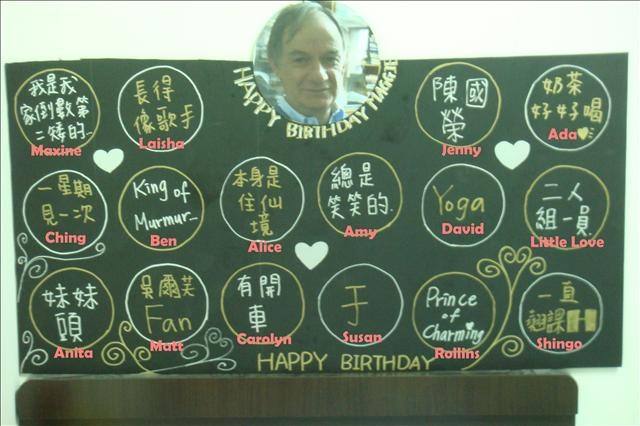 HAPPY BIRTHDAY MAGGIE
我是我
家倒數第
二矮的..
Maxine
長得
像歌手
Laisha
陳國
榮
Jenny
奶茶
好好喝
Ada
一星期
見一次
Ching
King of
Murmur..
Ben
本身是
住仙
境
Alice
總是
笑笑的..
Amy
Yoga
David
二人
組一員
Little Love
妹妹
頭
Anita
吳爾芙
Fan
Matt
有開
車
Carolyn
于
Susan
Prince
of
Charming
Rollins
一直
翹課
Shingo
HAPPY BIRTHDAY